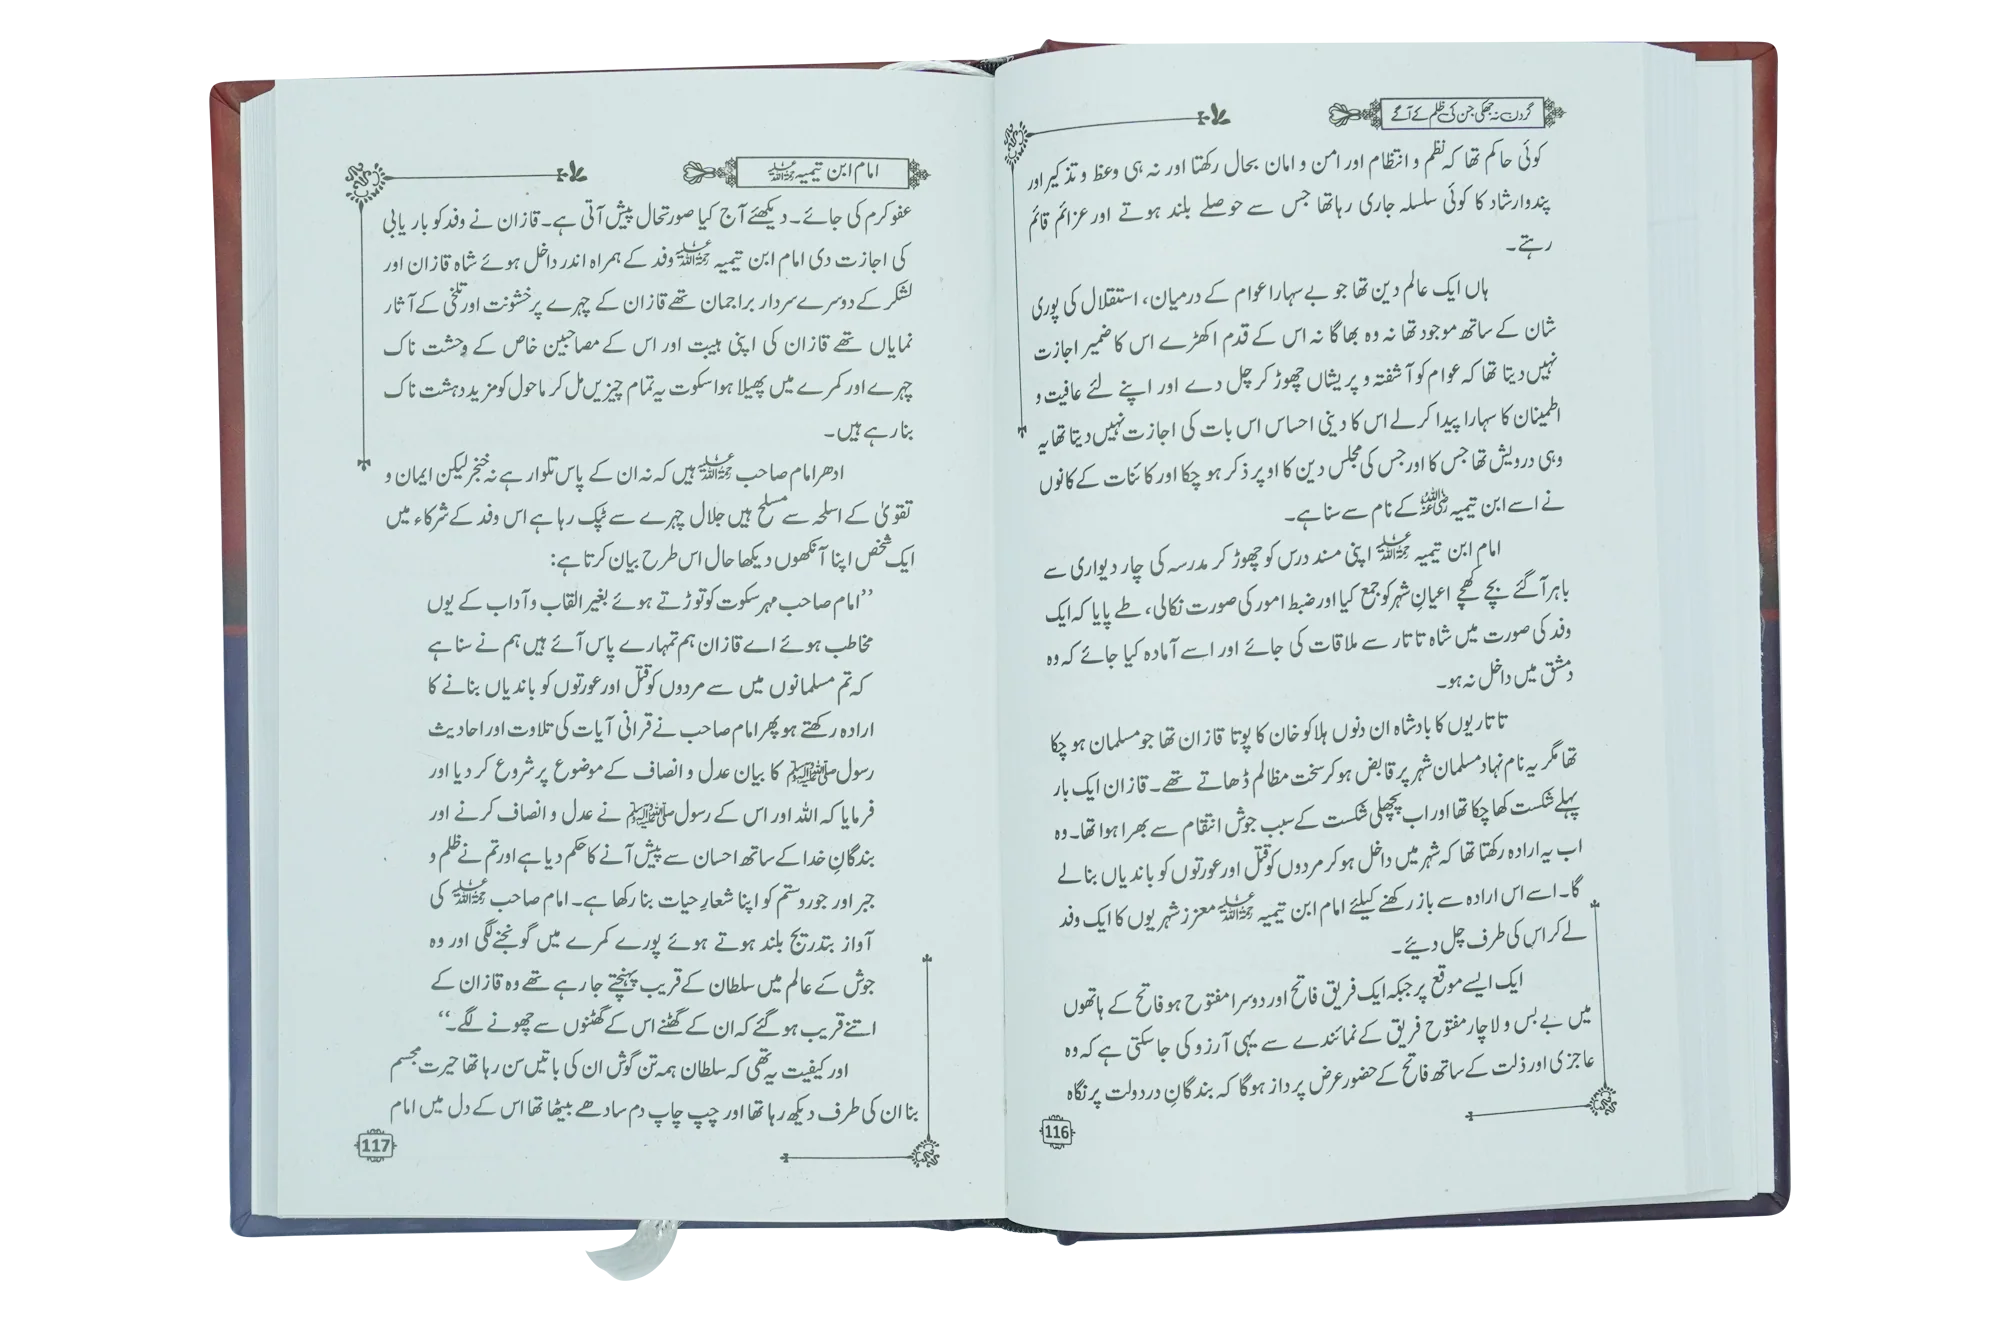 گردن نہ جھکی جن کی ظلم کے آگے
کوئی حاکم تھا کہ نظم و انتظام اور امن و امان بحال رکھتا اور نہ ہی وعظ و تذکیر اور
پندوارشاد کا کوئی سلسلہ جاری رہا تھا جس سے حوصلے بلند ہوتے اور عزائم قائم
رہتے۔
ہاں ایک عالم دین تھا جو بے سہارا عوام کے درمیان، استقلال کی پوری
شان کے ساتھ موجود تھا نہ وہ بھاگا نہ اس کے قدم اکھڑے اس کا ضمیر اجازت
نہیں دیتا تھا کہ عوام کو آشفتہ و پریشاں چھوڑ کر چل دے اور اپنے لئے عافیت و
اطمینان کا سہارا پیدا کرلے اس کا دینی احساس اس بات کی اجازت نہیں دیتا تھا یہ
وہی درویش تھا جس کا اور جس کی مجلس دین کا اوپر ذکر ہو چکا اور کائنات کے کانوں
نے اسے ابن تیمیہ رضی اللہ عنہ کے نام سے سنا ہے۔
امام ابن تیمیہ رحمۃ اللہ علیہ اپنی مسند درس کو چھوڑ کر مدرسہ کی چار دیواری سے
باہر آ گئے بچے کھچے اعیانِ شہر کو جمع کیا اور ضبط امور کی صورت نکالی، طے پایا کہ ایک
وفد کی صورت میں شاہ تاتار سے ملاقات کی جائے اور اسے آمادہ کیا جائے کہ وہ
دمشق میں داخل نہ ہو۔
تاتاریوں کا بادشاہ ان دنوں ہلاکو خان کا پوتا قازان تھا جو مسلمان ہو چکا
تھا مگر یہ نام نہاد مسلمان شہر پر قابض ہو کر سخت مظالم ڈھاتے تھے۔ قازان ایک بار
پہلے شکست کھا چکا تھا اور اب پچھلی شکست کے سبب جوش انتقام سے بھرا ہوا تھا۔ وہ
اب یہ ارادہ رکھتا تھا کہ شہر میں داخل ہو کر مردوں کو قتل اور عورتوں کو باندیاں بنالے
گا۔ اسے اس ارادہ سے باز رکھنے کیلئے امام ابن تیمیہ رحمۃ اللہ علیہ معزز شہریوں کا ایک وفد
لے کر اس کی طرف چل دیئے۔
ایک ایسے موقع پر جبکہ ایک فریق فاتح اور دوسرا مفتوح ہو فاتح کے ہاتھوں
میں بے بس و لاچار مفتوح فریق کے نمائندے سے یہی آرزو کی جاسکتی ہے کہ وہ
عاجزی اور ذلت کے ساتھ فاتح کے حضور عرض پرداز ہوگا کہ بندگانِ دردولت پر نگاہ
116
امام ابن تیمیہ رحمۃ اللہ علیہ
عفو کرم کی جائے۔ دیکھئے آج کیا صورتحال پیش آتی ہے۔ قازان نے وفد کو باریابی
کی اجازت دی امام ابن تیمیہ رحمۃ اللہ علیہ وفد کے ہمراہ اندر داخل ہوئے شاہ قازان اور
لشکر کے دوسرے سردار براجمان تھے قازان کے چہرے پر خشونت اور تلخی کے آثار
نمایاں تھے قازان کی اپنی ہیبت اور اس کے مصاحبین خاص کے وحشت ناک
چہرے اور کمرے میں پھیلا ہوا سکوت یہ تمام چیزیں مل کر ماحول کو مزید دہشت ناک
بنا رہے ہیں۔
ادھر امام صاحب رحمۃ اللہ علیہ ہیں کہ نہ ان کے پاس تلوار ہے نہ خنجر لیکن ایمان و
تقویٰ کے اسلحہ سے مسلح ہیں جلال چہرے سے ٹپک رہا ہے اس وفد کے شرکاء میں
ایک شخص اپنا آنکھوں دیکھا حال اس طرح بیان کرتا ہے:
”امام صاحب مہر سکوت کو توڑتے ہوئے بغیر القاب و آداب کے یوں
مخاطب ہوئے اے قازان ہم تمہارے پاس آئے ہیں ہم نے سنا ہے
کہ تم مسلمانوں میں سے مردوں کو قتل اور عورتوں کو باندیاں بنانے کا
ارادہ رکھتے ہو پھر امام صاحب نے قرانی آیات کی تلاوت اور احادیث
رسول صلی اللہ علیہ وسلم کا بیان عدل و انصاف کے موضوع پر شروع کر دیا اور
فرمایا کہ اللہ اور اس کے رسول صلی اللہ علیہ وسلم نے عدل و انصاف کرنے اور
بندگانِ خدا کے ساتھ احسان سے پیش آنے کا حکم دیا ہے اور تم نے ظلم و
جبر اور جوروستم کو اپنا شعارِ حیات بنا رکھا ہے۔ امام صاحب رحمۃ اللہ علیہ کی
آواز بتدریج بلند ہوتے ہوئے پورے کمرے میں گونجنے لگی اور وہ
جوش کے عالم میں سلطان کے قریب پہنچتے جا رہے تھے وہ قازان کے
اتنے قریب ہو گئے کہ ان کے گھٹنے اس کے گھٹنوں سے چھونے لگے۔“
اور کیفیت یہ تھی کہ سلطان ہمہ تن گوش ان کی باتیں سن رہا تھا حیرت مجسم
بنا ان کی طرف دیکھ رہا تھا اور چپ چاپ دم سادھے بیٹھا تھا اس کے دل میں امام
117